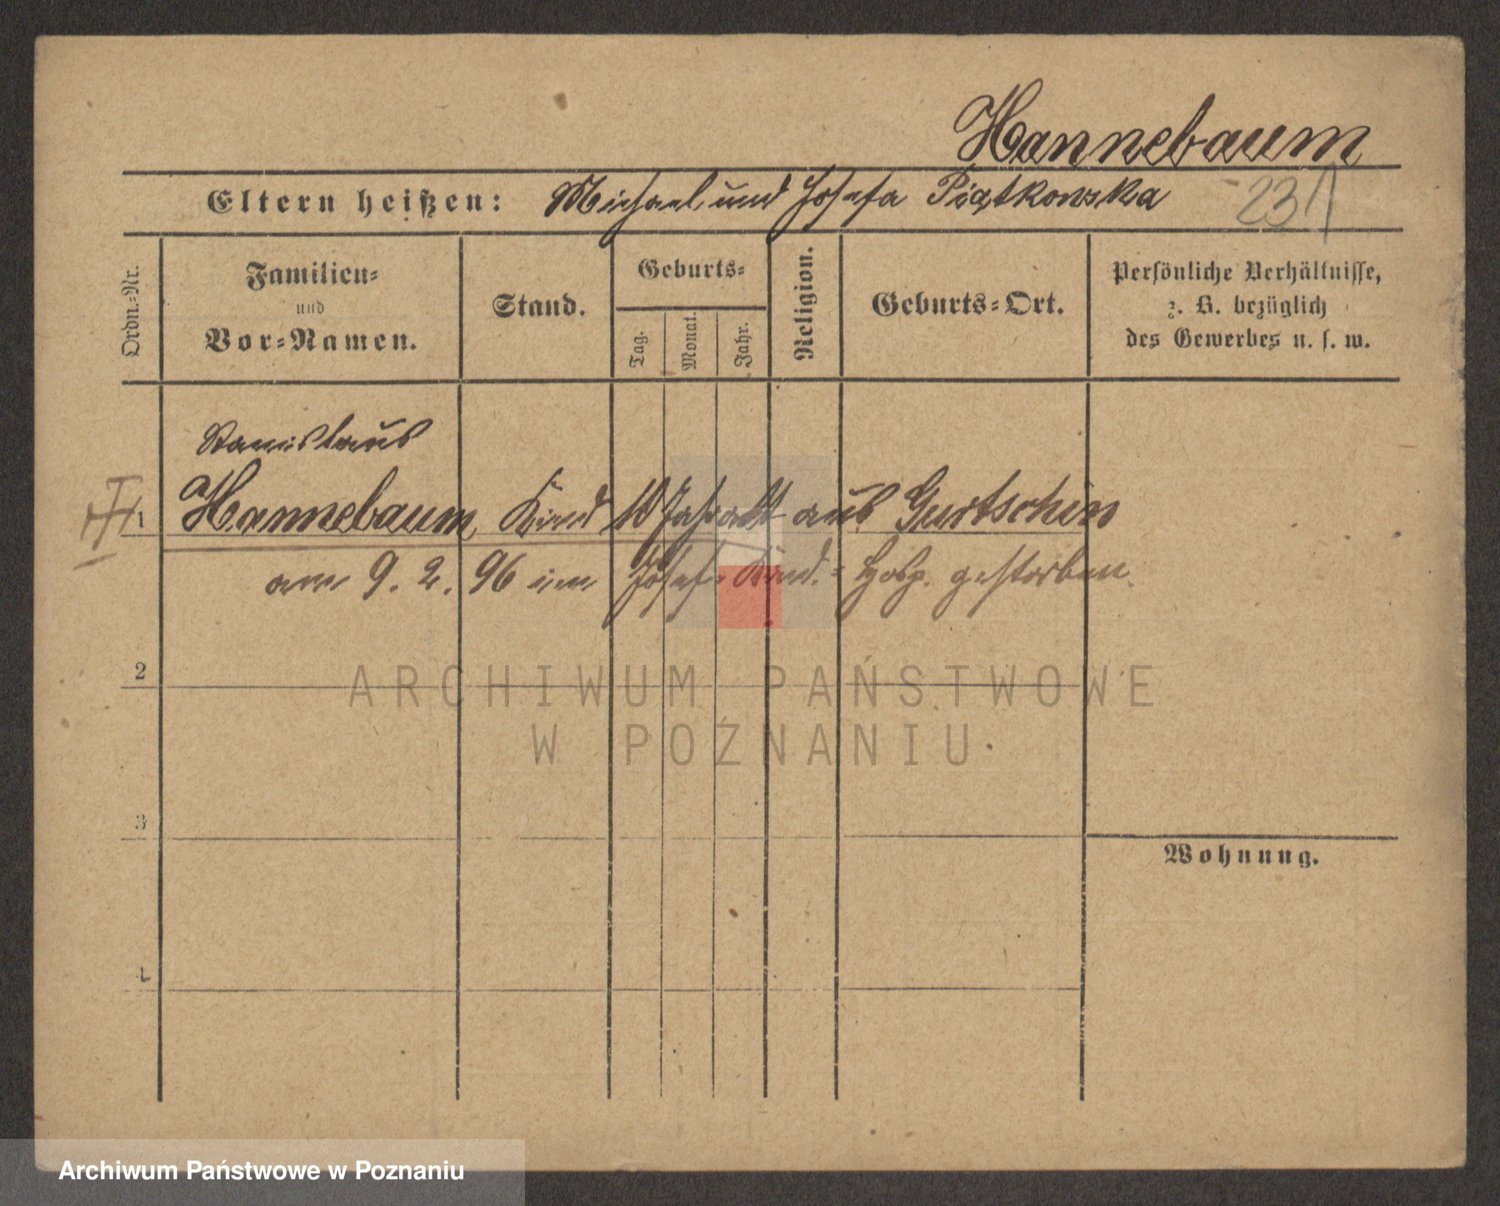 Hannebaum
Eltern heißen: Michael und Josefa Piątkowska 231
Ordn.-Nr.
Familien-
und
Vor-Namen.
Stand.
Geburts-
Tag.
Monat.
Jahr.
Religion.
Geburts-Ort.
Persönliche Verhältnisse,
z. B. bezüglich
des Gewerbes u. s. w.
Stanislaus
1 Hannebaum, Kind 10 Jahr alt aus Gurtschin
am 9. 2. 96 im Josef-Kind.- Hosp. gestorben.
2
ARCHIWUM PAŃSTWOWE
W POZNANIU
3
Wohnung.
4
Archiwum Państwowe w Poznaniu